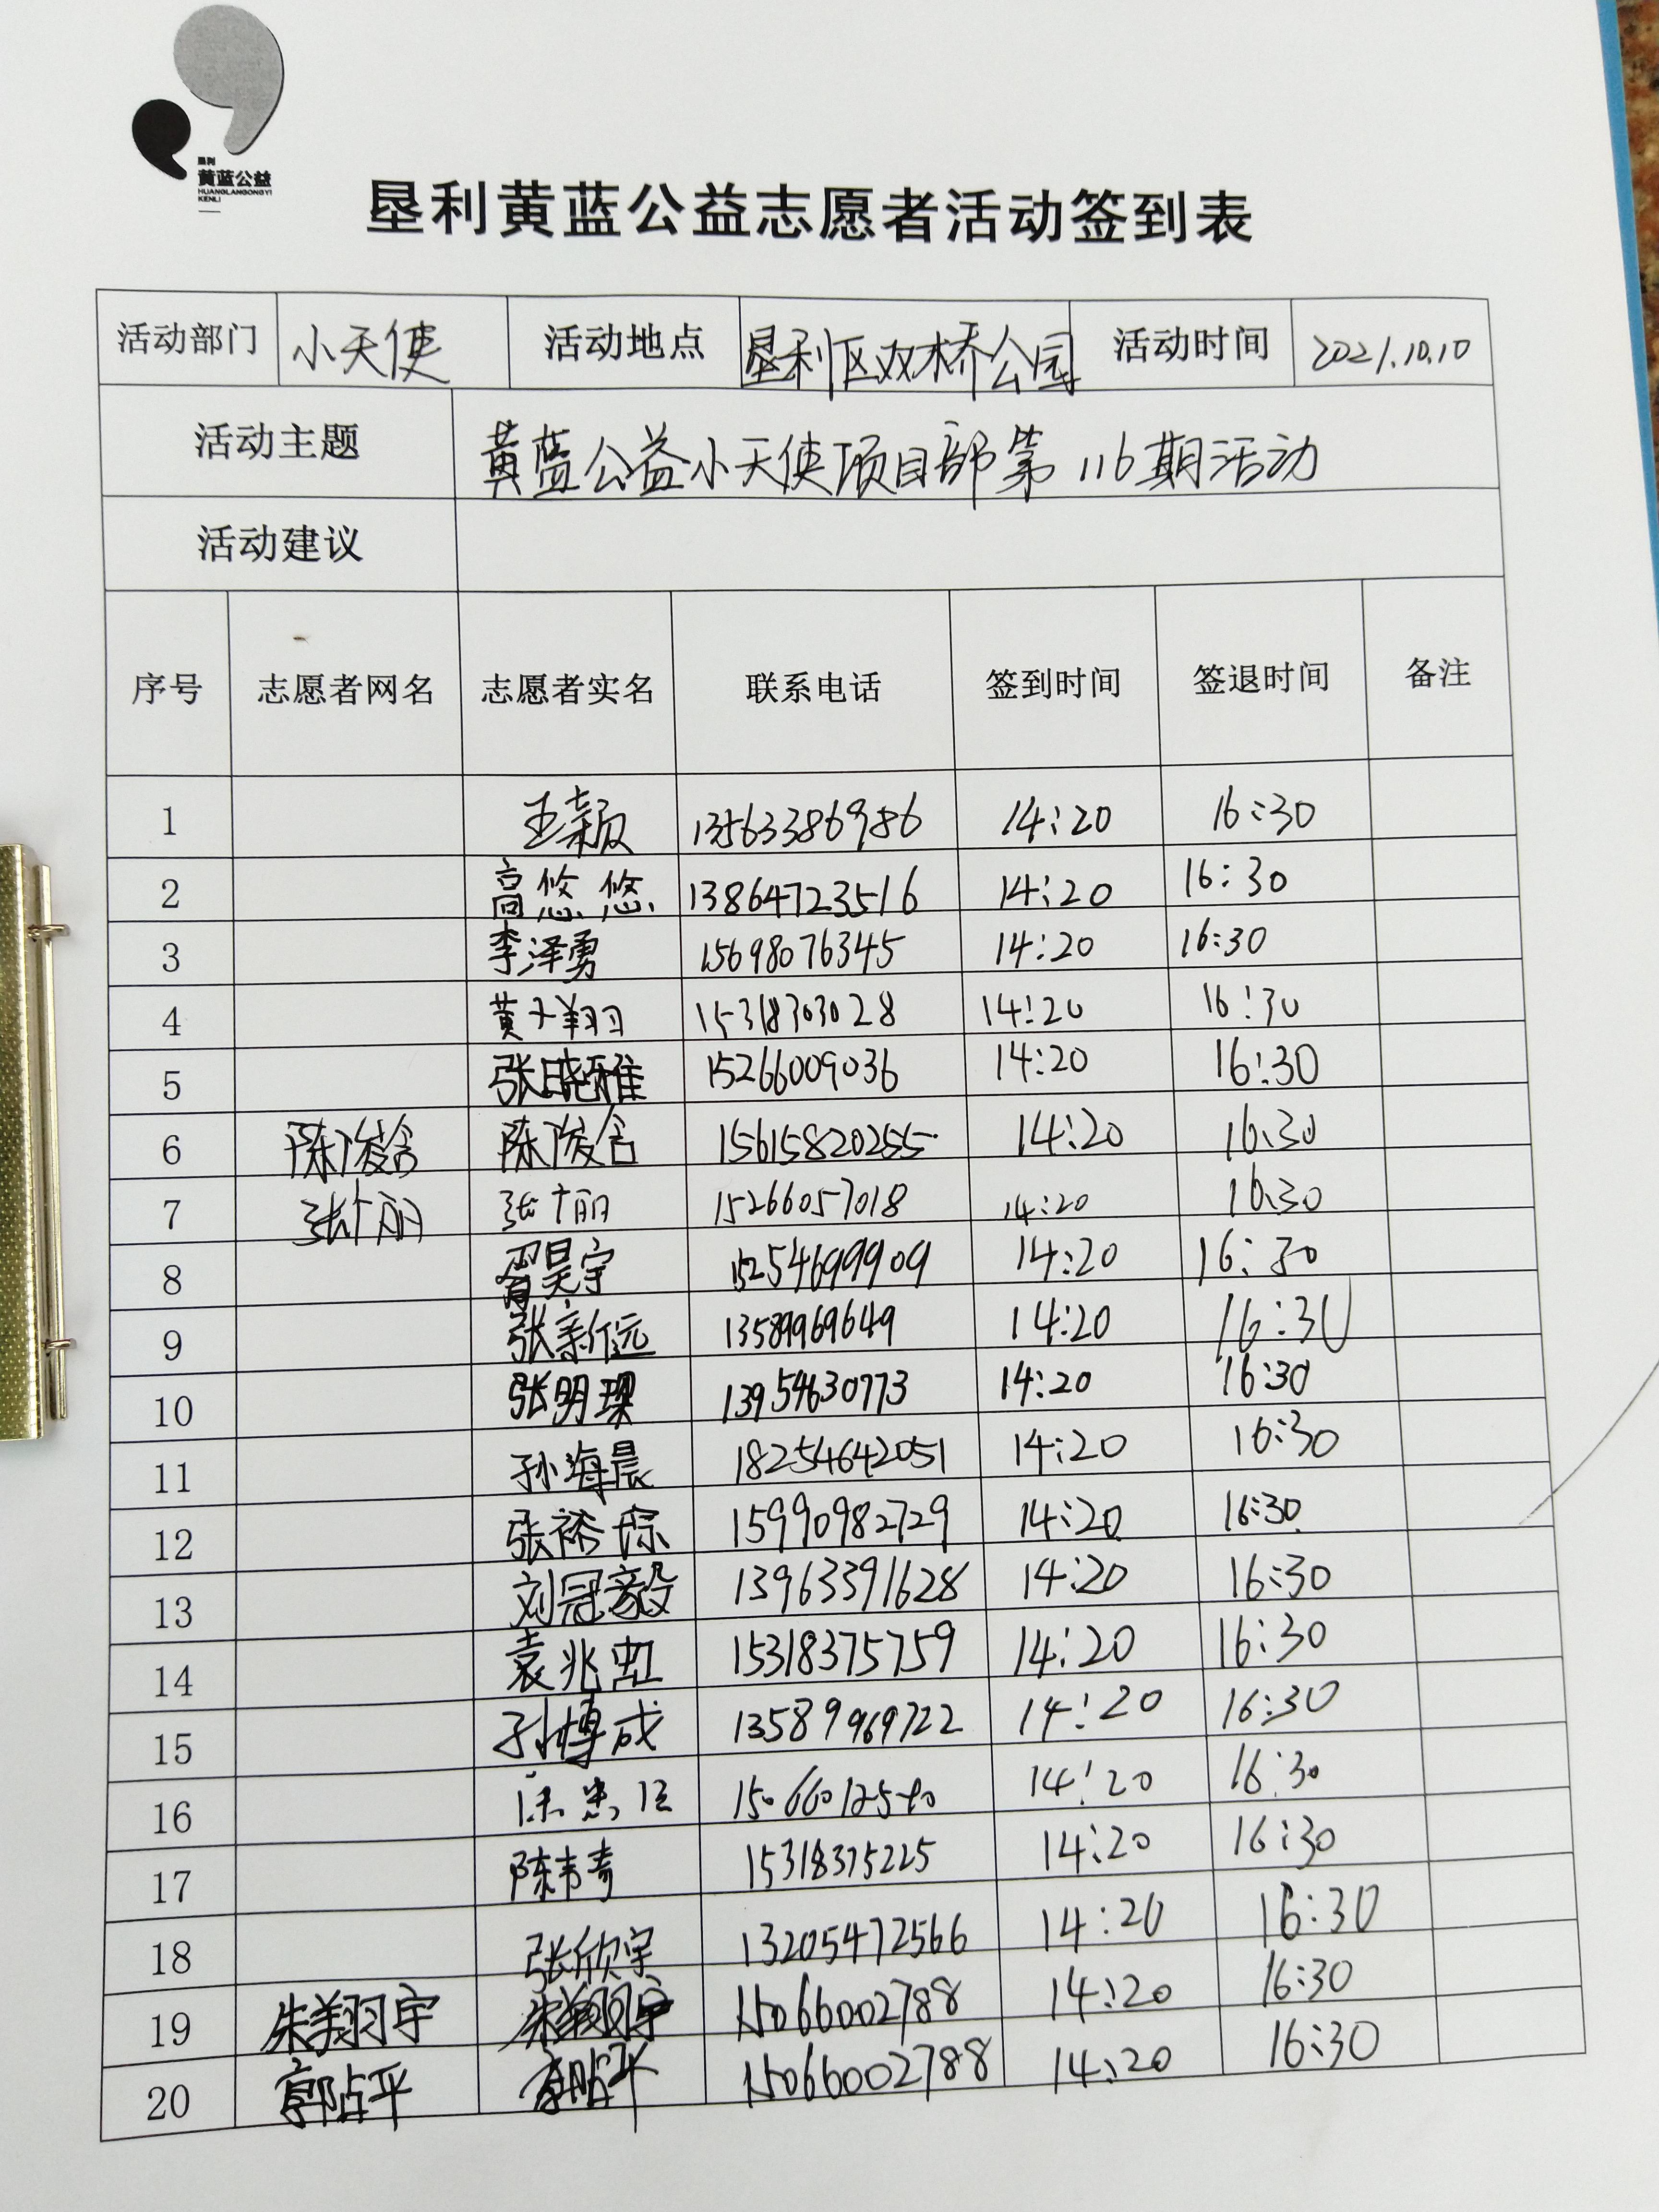 垦利
黄蓝公益
HUANGLANGONGYI
KENLI
垦利黄蓝公益志愿者活动签到表
活动部门 小天使 活动地点 垦利区双桥公园 活动时间 2021.10.10
活动主题 黄蓝公益小天使项目部第116期活动
活动建议
序号 志愿者网名 志愿者实名 联系电话 签到时间 签退时间 备注
1 王颖 13563386986 14:20 16:30
2 高悠悠 13864723516 14:20 16:30
3 李泽勇 15698076345 14:20 16:30
4 黄子翔 15318303028 14:20 16:30
5 张晓雅 15266009036 14:20 16:30
6 陈俊含 陈俊含 15615820255 14:20 16:30
7 张丽 张丽 15266057018 14:20 16:30
8 胥昊宇 15254699909 14:20 16:30
9 张新远 13589969649 14:20 16:30
10 张明琛 13954630773 14:20 16:30
11 孙海晨 18254642051 14:20 16:30
12 张裕琮 15990982729 14:20 16:30
13 刘冠毅 13963391628 14:20 16:30
14 袁兆虹 15318375759 14:20 16:30
15 孙博成 13589969722 14:20 16:30
16 14:20 16:30
17 陈韦奇 15318375225 14:20 16:30
18 张欣宇 13205472566 14:20 16:30
19 朱翔宇 朱翔宇 15066002788 14:20 16:30
20 郭占平 郭占平 15066002788 14:20 16:30